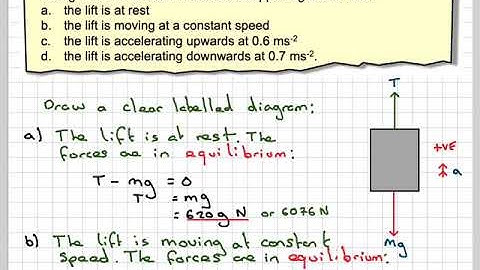 a. the lift is at rest
b. the lift is moving at a constant speed
c. the lift is accelerating upwards at 0.6 ms⁻²
d. the lift is accelerating downwards at 0.7 ms⁻².
Draw a clear labelled diagram:
a) The lift is at rest. The
forces are in equilibrium:
T - mg = 0
T = mg
= 620g N or 6076 N
b) The lift is moving at constant
speed. The forces are in equilibrium:
T
+VE
a
mg